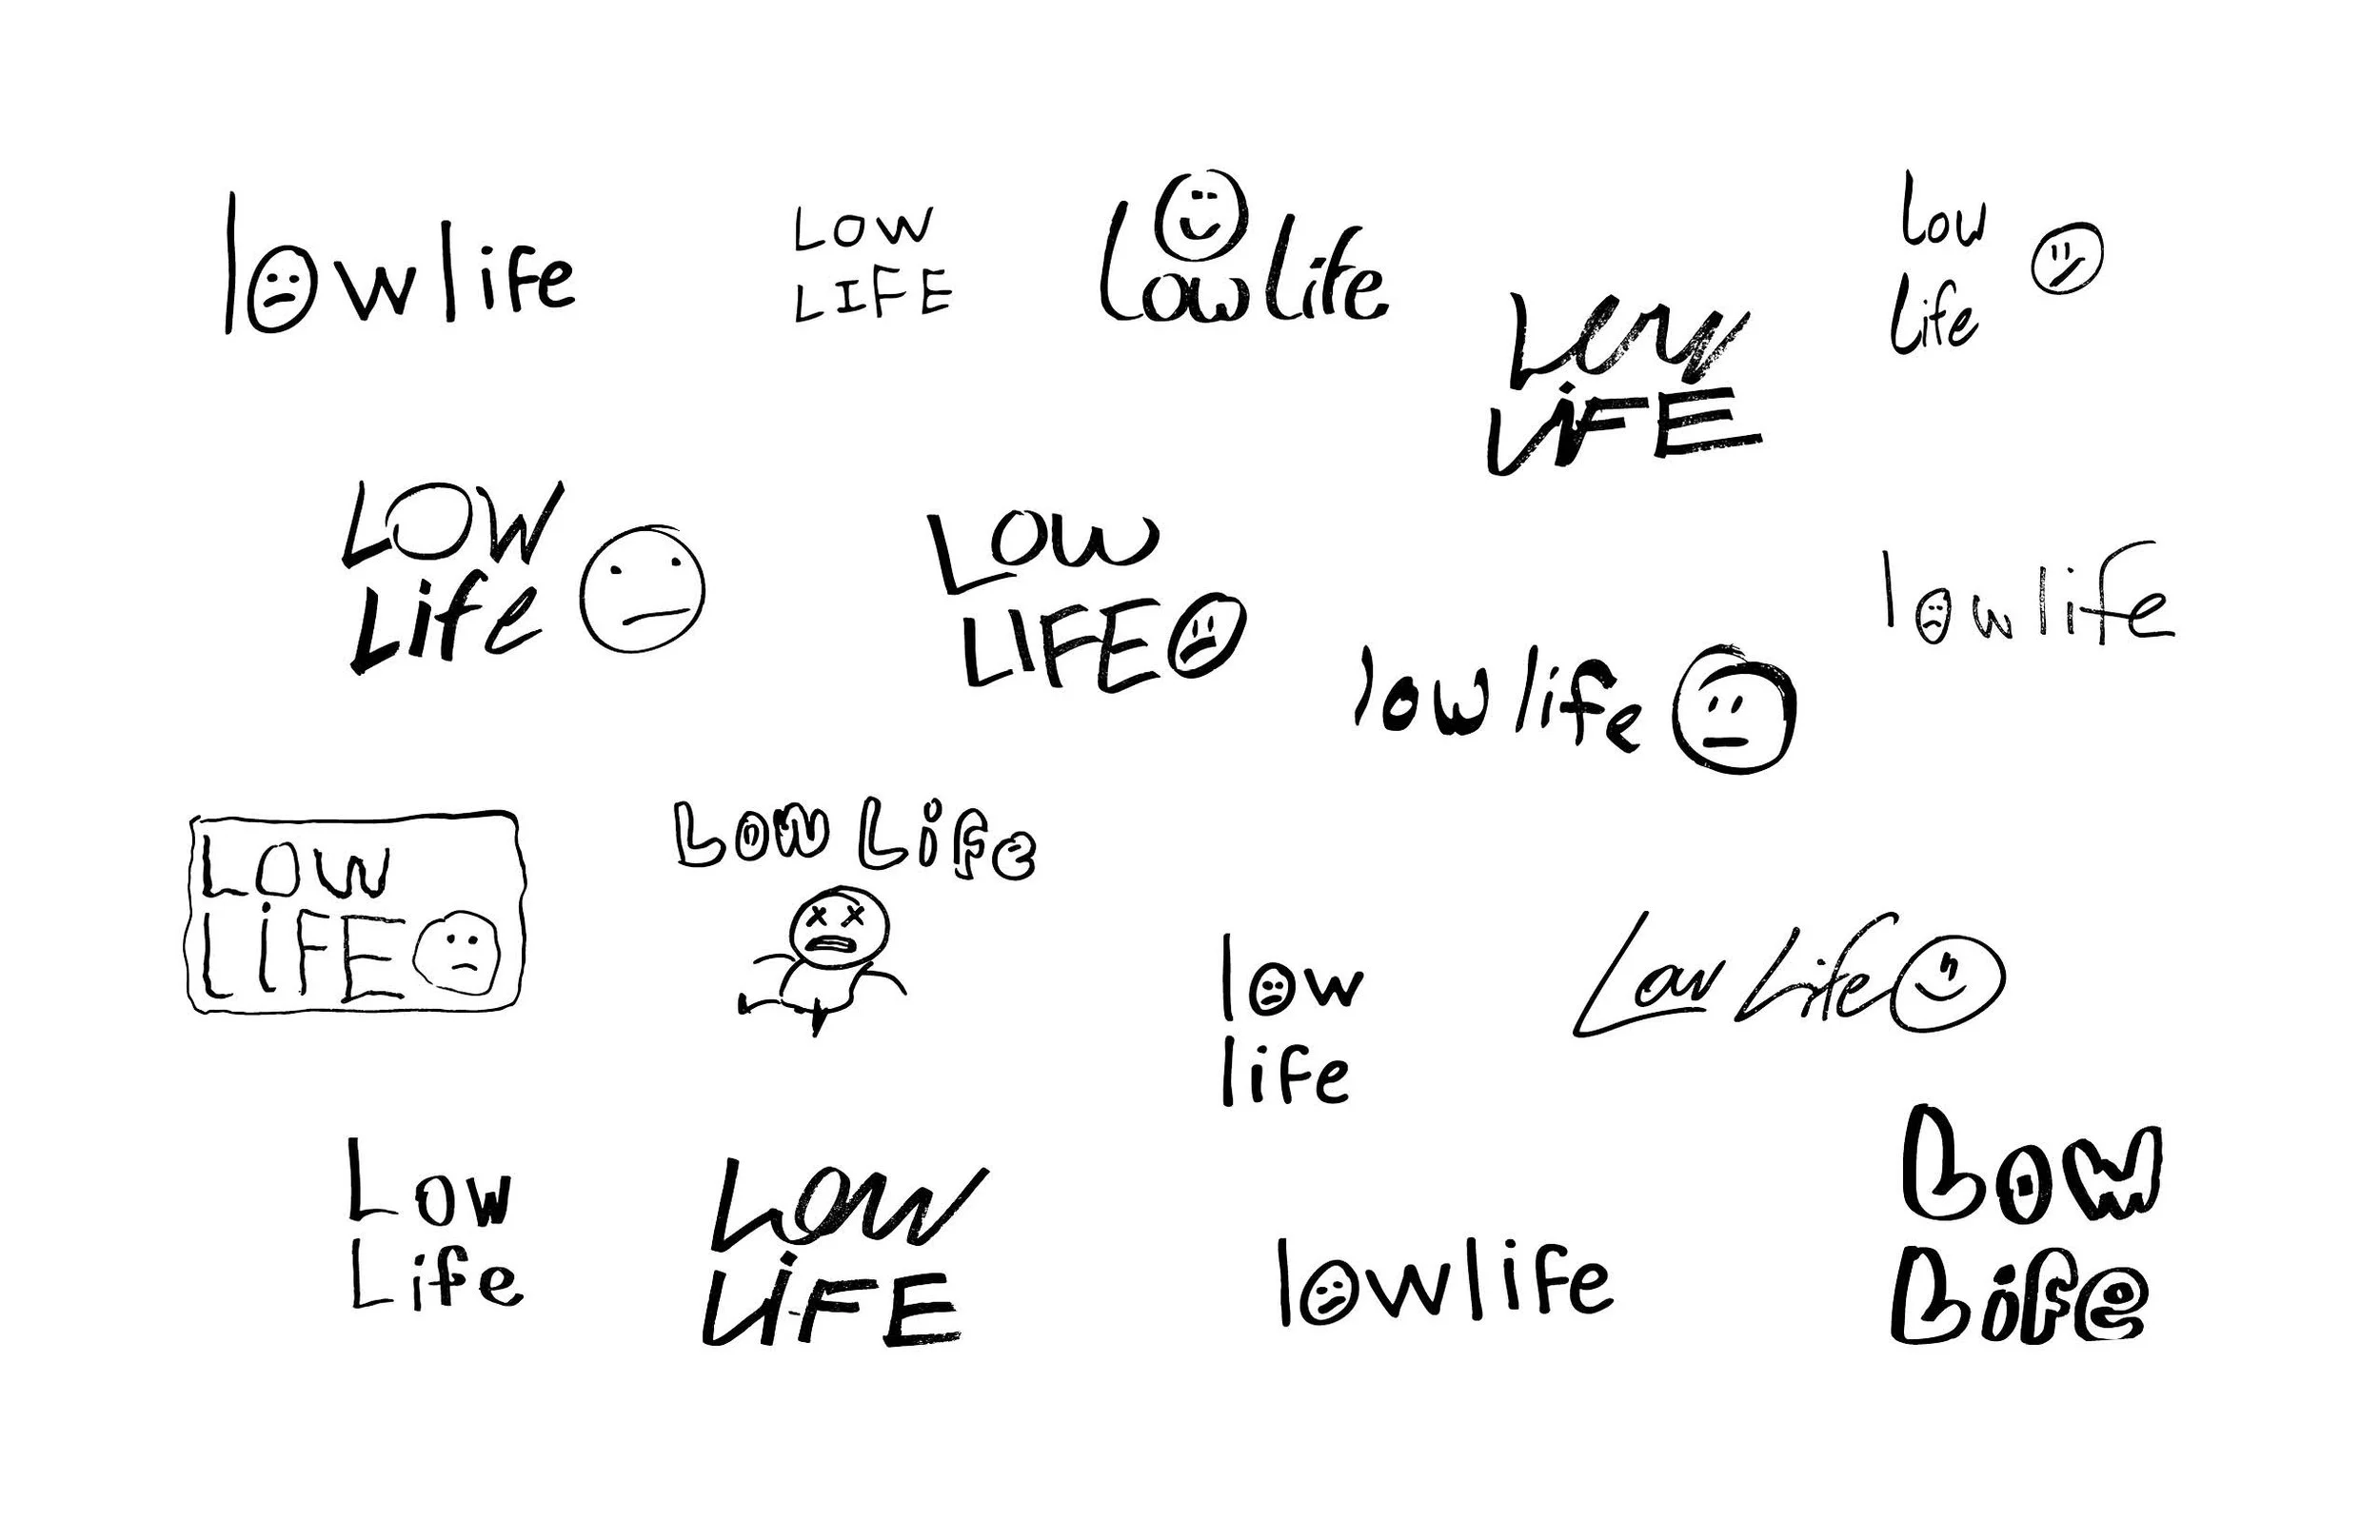 lowlife
LOW
LIFE
Lowlife
Low
Life
Low
LIFE
LOW
Life
LOW
LIFE
lowlife
low life
LOW
LIFE
Low Life
low
life
Low Life
Low
Life
LOW
LIFE
lowlife
Low
Life